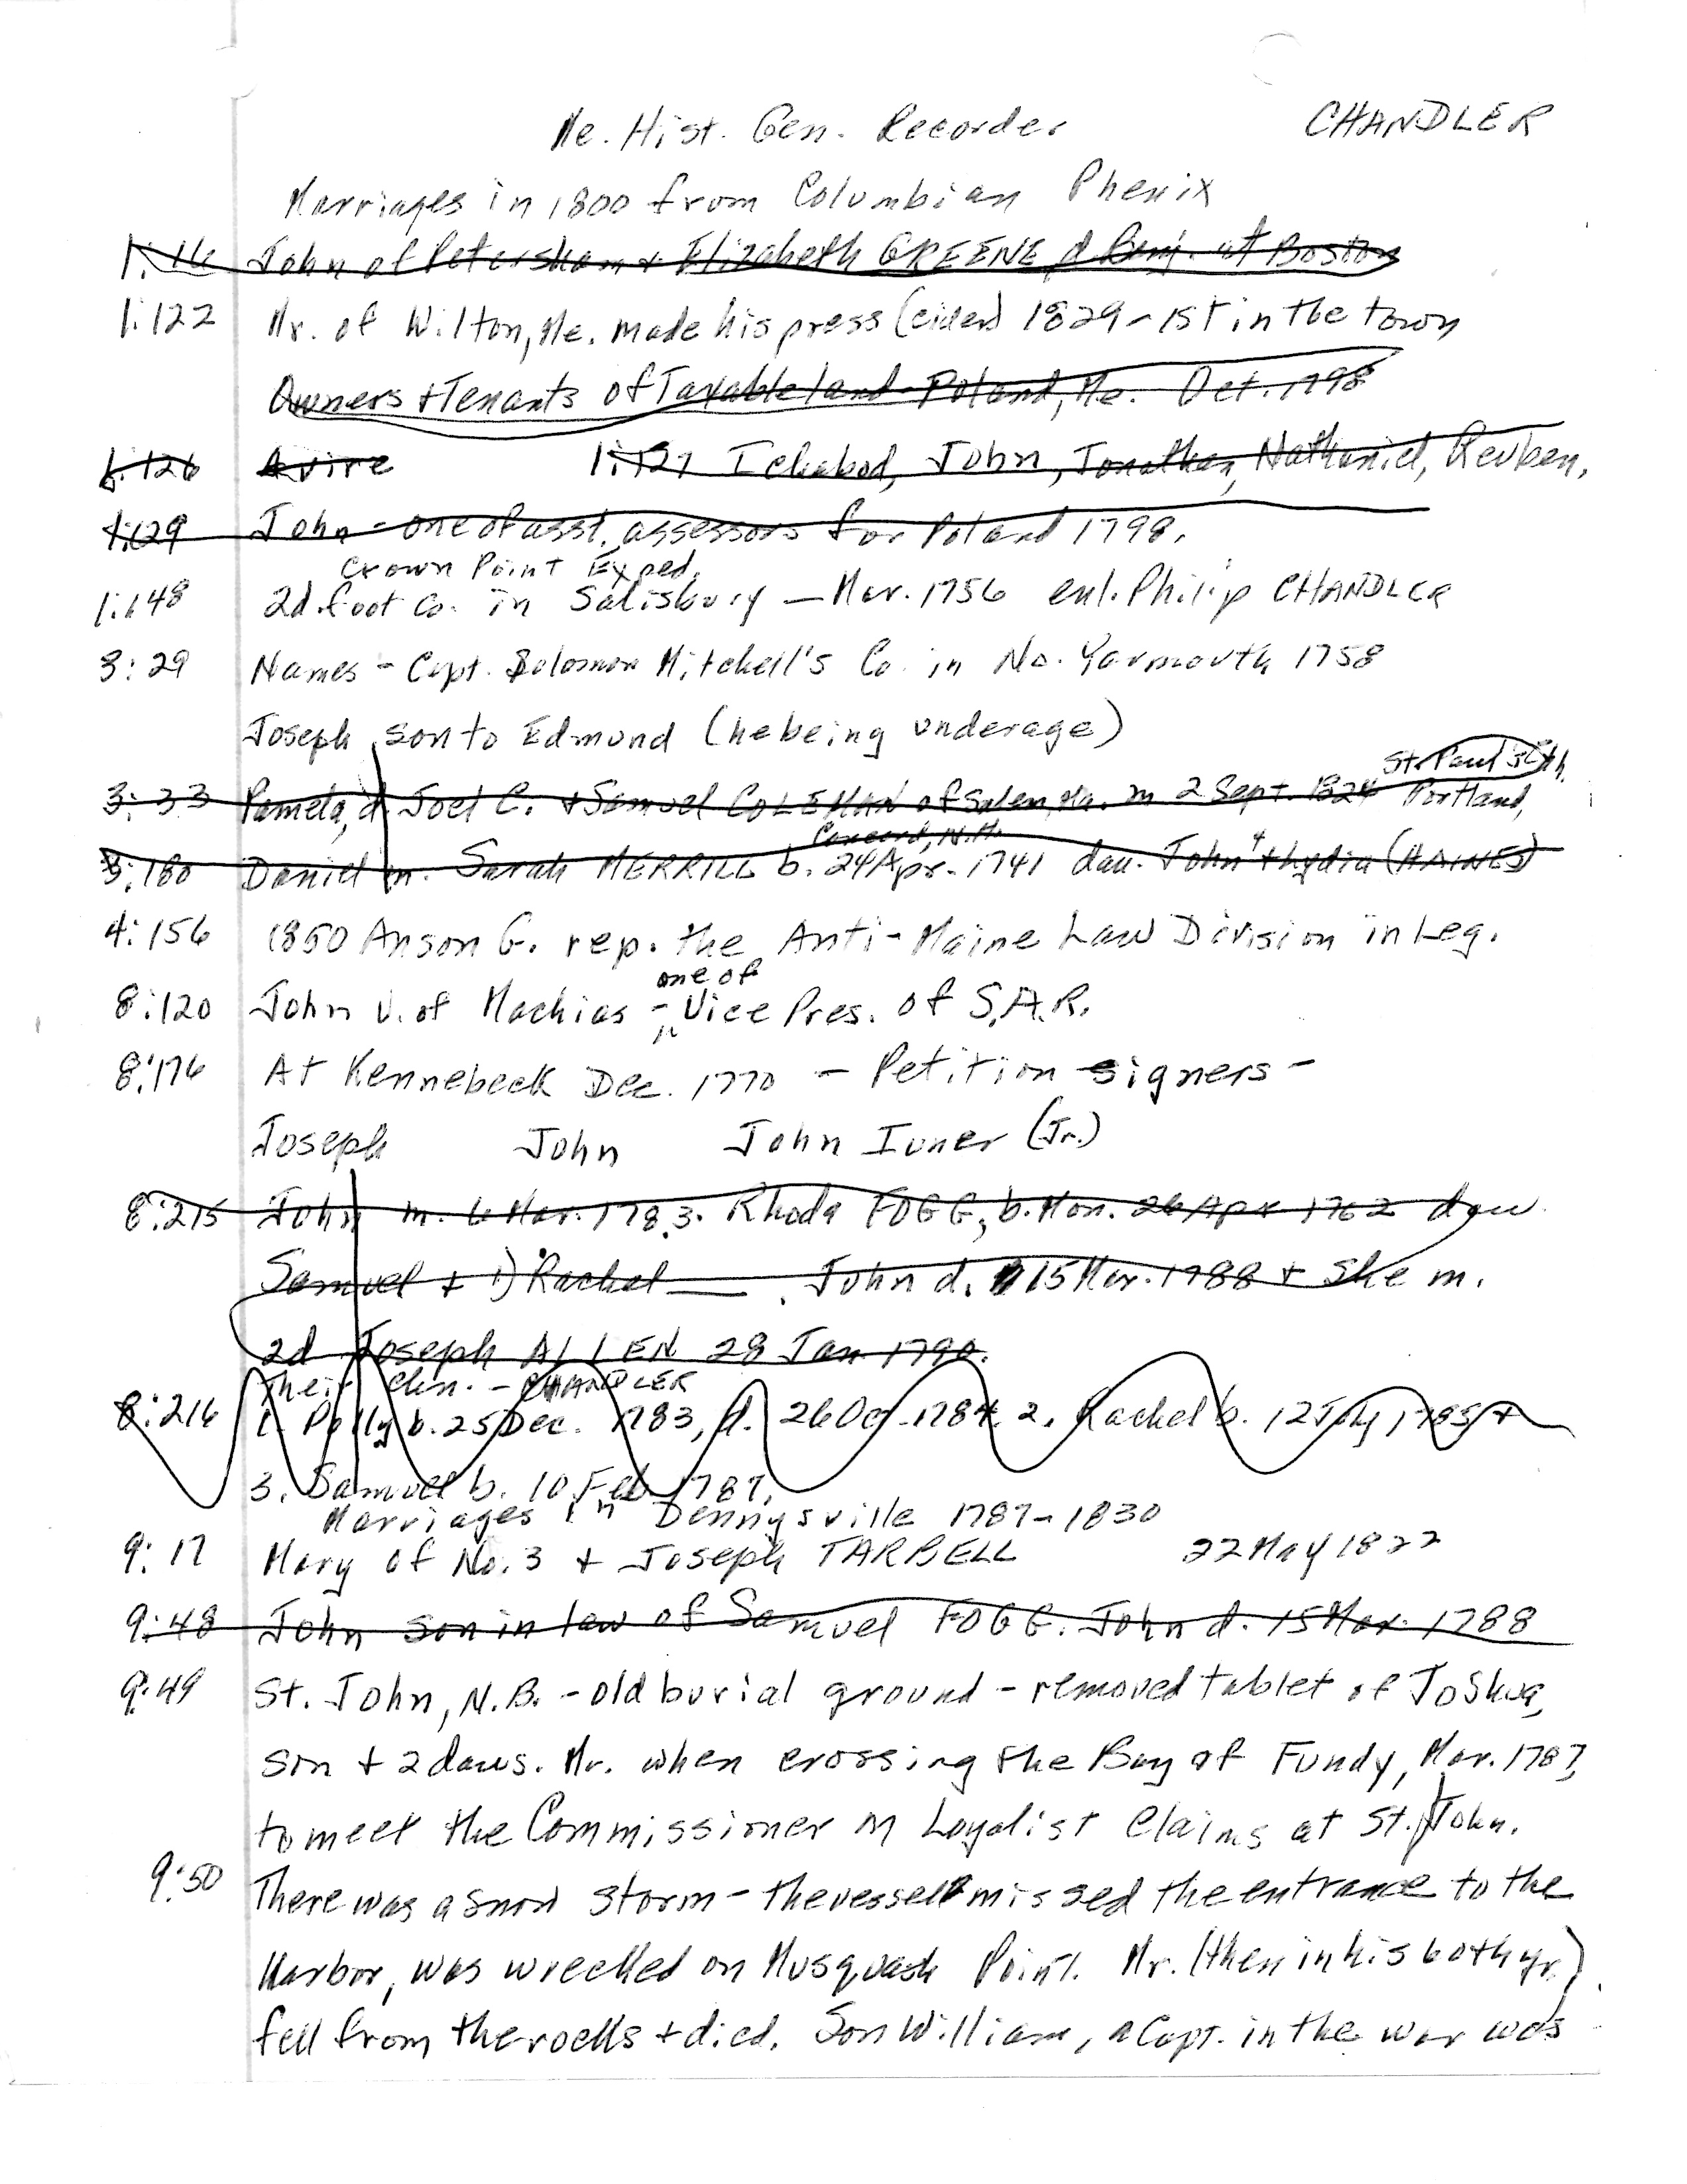 Me. Hist. Gen. Recorder CHANDLER
Marriages in 1800 from Columbian Phenix
1:16 John of Petersham + Elizabeth GREENE d Benj. at Boston
1:122 Mr. of Wilton, Me. made his press (cider) 1829 - 1st in the town
Owners + Tenants of Taxable land - Poland, Me. Oct. 1798
1:126 1:127 Ichabod, John, Jonathan, Nathaniel, Reuben,
1:129 John - one of asst. assessors for Poland 1798.
Crown Point Exped.
1:148 2d. foot Co. in Salisbury - Mar. 1756 enl. Philip CHANDLER
3:29 Names - Capt. Solomon Mitchell's Co. in No. Yarmouth 1758
Joseph, son to Edmund (he being underage)
St. Paul's Ch.
3:33 Pamela, d. Joel C. + Samuel COLEMAN of Salem, Ma. m 2 Sept. 1824 Portland,
Concord, N.H.
3:180 Daniel m. Sarah MERRILL b. 24 Apr. 1741 dau. John⁴ + Lydia (HAINES)
4:156 1850 Anson G. rep. the Anti-Maine Law Division in Leg.
one of
8:120 John V. of Machias - Vice Pres. of S.A.R.
8:176 At Kennebeck Dec. 1770 - Petition signers -
Joseph John John Iuner (Jr.)
8:215 John m. 6 Mar. 1783. Rhoda FOGG, b. Mon. 26 Apr 1762 dau.
Samuel + 1) Rachel ___. John d. 15 Mar. 1788 + she m.
2d Joseph ALLEN 28 Jan 1790.
Their chn. - CHANDLER
8:216 1. Polly b. 25 Dec. 1783, d. 26 Oc 1784 2. Rachel b. 12 July 1785 +
3. Samuel b. 10 Feb 1787.
Marriages in Dennysville 1787-1830
9:17 Mary of No. 3 + Joseph TARBELL 22 May 1822
9:48 John son in law of Samuel FOGG. John d. 15 Mar. 1788
9:49 St. John, N.B. - old burial ground - removed tablet of Joshua,
son + 2 daus. Mr. when crossing the Bay of Fundy, Mar. 1787,
to meet the Commissioner on Loyalist Claims at St. John.
9:50 There was a snow storm - the vessel missed the entrance to the
Harbor, was wrecked on Musquash Point. Mr. (then in his 60th yr.)
fell from the rocks + died. Son William, a Capt. in the war was